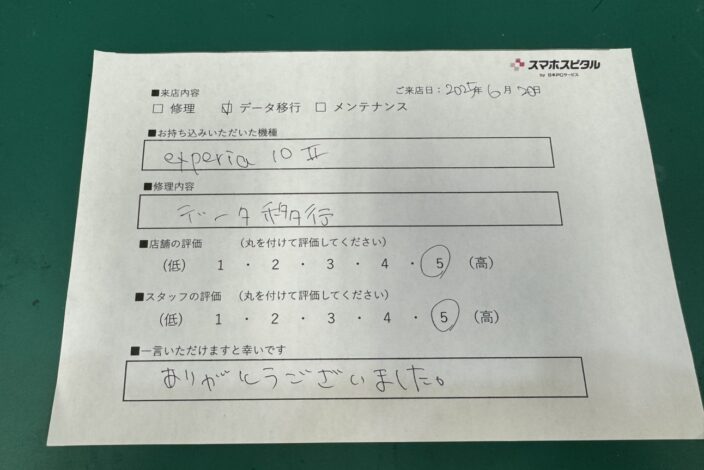 スマホスピタル
by 日本PCサービス
■来店内容
ご来店日：2025年 6月 20日
□ 修理 ☑ データ移行 □ メンテナンス
■お持ち込みいただいた機種
experia 10 Ⅱ
■修理内容
データ移行
■店舗の評価 （丸を付けて評価してください）
（低） 1 ・ 2 ・ 3 ・ 4 ・ 5 （高）
■スタッフの評価 （丸を付けて評価してください）
（低） 1 ・ 2 ・ 3 ・ 4 ・ 5 （高）
■一言いただけますと幸いです
ありがとうございました。